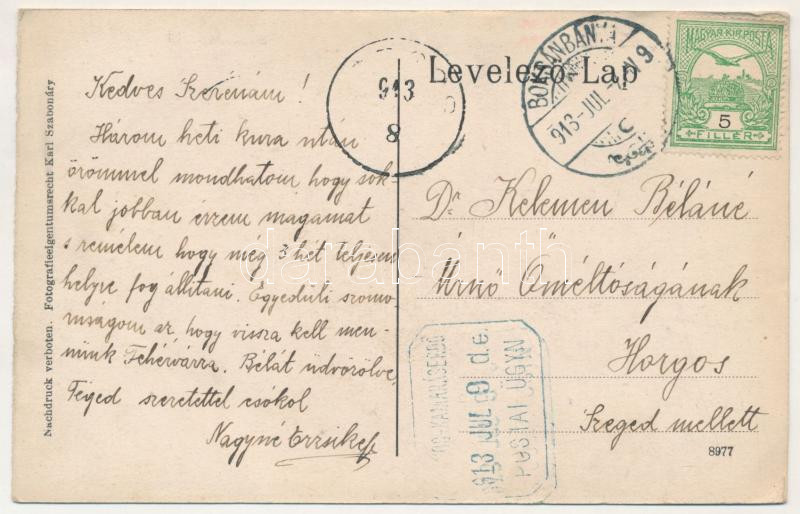 Kedves Szerénám!
Három heti kura után
örömmel mondhatom, hogy sok-
kal jobban érzem magamat
s remélem hogy még 3 hét teljesen
helyre fog állítani. Egyedüli szomo-
rúságom az, hogy vissza kell men-
nünk Fehérvárra. Bélát üdvözölve,
Téged szeretettel csókol
Nagyné Erzsike
Nachdruck verboten. Fotografieeigentumsrecht Karl Szabonáry
913
8
Levelező-Lap
913 JUL
MAGYAR KIR. POSTA
5
FILLÉR
Dr Kelemen Béláné
Úrnő Őméltóságának
Horgos
Szeged mellett
8977
913 JUL 9 d.e.
POSTAI ÜGYN
darabanth